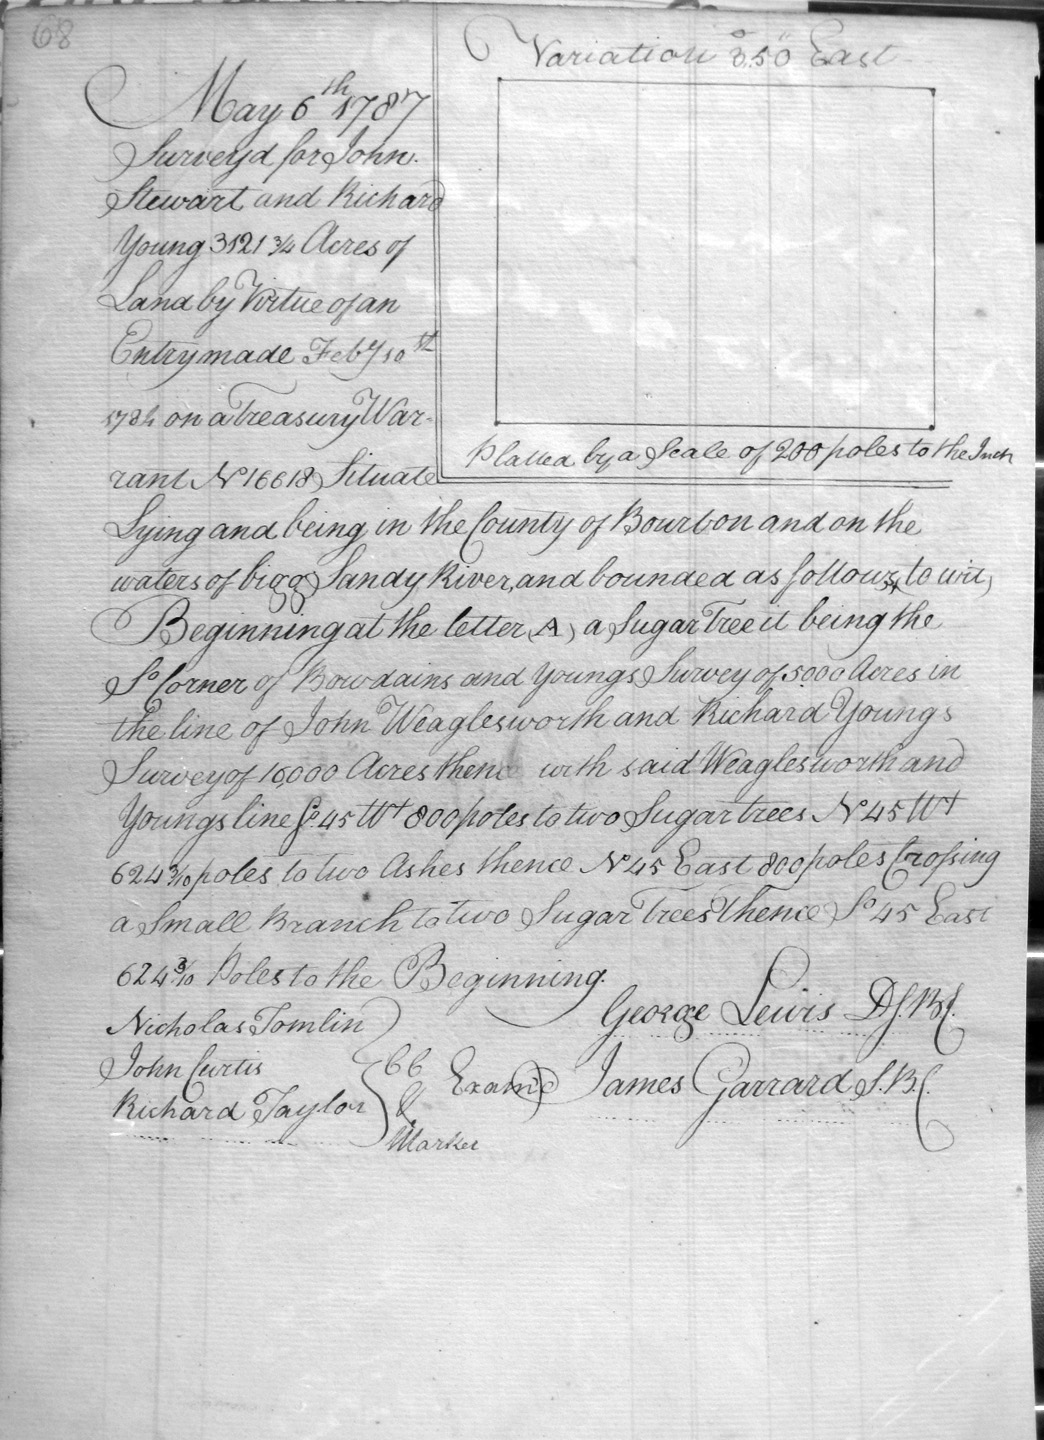 68
Variation 3°.50" East
May 6th 1787
Surveyd for John
Stewart and Richard
Young 3121 3/4 Acres of
Land by Virtue of an
Entry made Feby 10st
1784 on a Treasury War-
rant No 16618 Situate
Platted by a Scale of 200 poles to the Inch
Lying and being in the County of Bourbon and on the
waters of bigg Sandy River, and bounded as follows, to wit,
Beginning at the letter, A, a Sugar Tree it being the
So Corner of Bowdains and Youngs Survey of 5000 Acres in
the line of John Weaglesworth and Richard Youngs
Survey of 16,000 Acres thence with said Weaglesworth and
Youngs line So. 45 Wt 800 poles to two Sugar trees No 45 Wt
624 3/10 poles to two Ashes thence No 45 East 800 poles Crossing
a Small Branch to two Sugar Trees Thence So 45 East
624 3/10 Poles to the Beginning.
George Lewis D.S.B.C.
Nicholas Tomlin
John Curtis
Richard Taylor
CC
&
Marker
Examd James Garrard S.B.C.